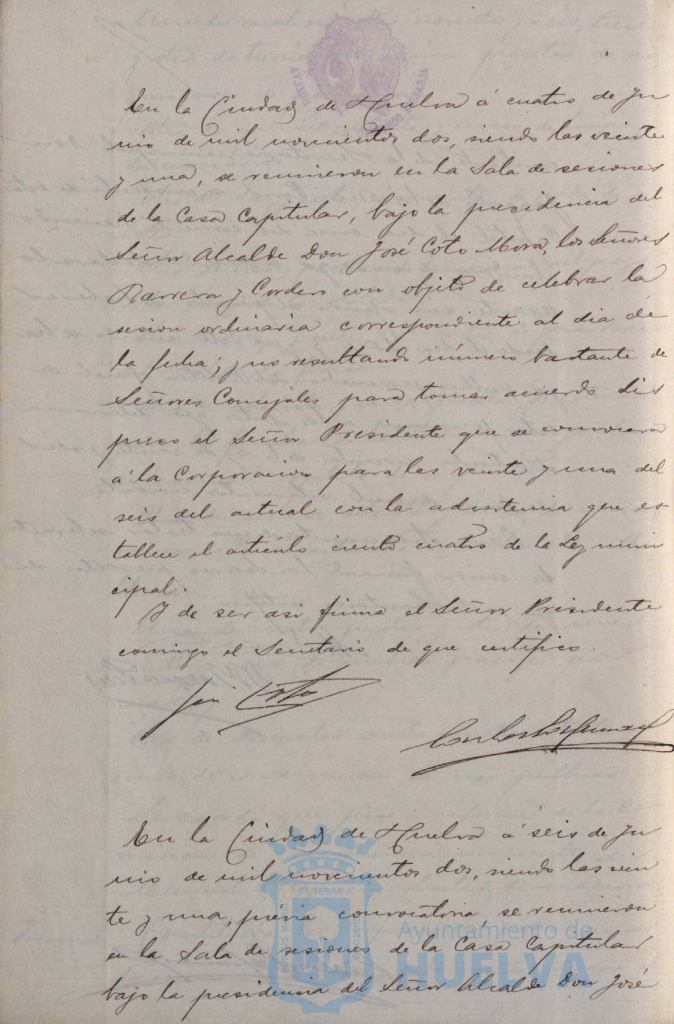 En la Ciudad de Huelva á cuatro de Ju
nio de mil novecientos dos, siendo las veinte
y una, se reunieron en la Sala de sesiones
de la Casa Capitular, bajo la presidencia del
Señor Alcalde Don José Coto Mora, los Señores
Barrera y Cordero con objeto de celebrar la
sesion ordinaria correspondiente al dia de
la fecha; y no resultando número bastante de
Señores Concejales para tomar acuerdo dis
puso el Señor Presidente que se convocara
á la Corporacion para las veinte y una del
seis del actual con la advertencia que es-
tablece el artículo ciento cuatro de la Ley muni
cipal.
Y de ser asi firma el Señor Presidente
conmigo el Secretario de que certifico.
José Coto
En la Ciudad de Huelva á seis de Ju
nio de mil novecientos dos, siendo las vein
te y una, prévia convocatoria, se reunieron
en la Sala de sesiones de la Casa Capitular
bajo la presidencia del Señor Alcalde Don José
Ayuntamiento de
HUELVA